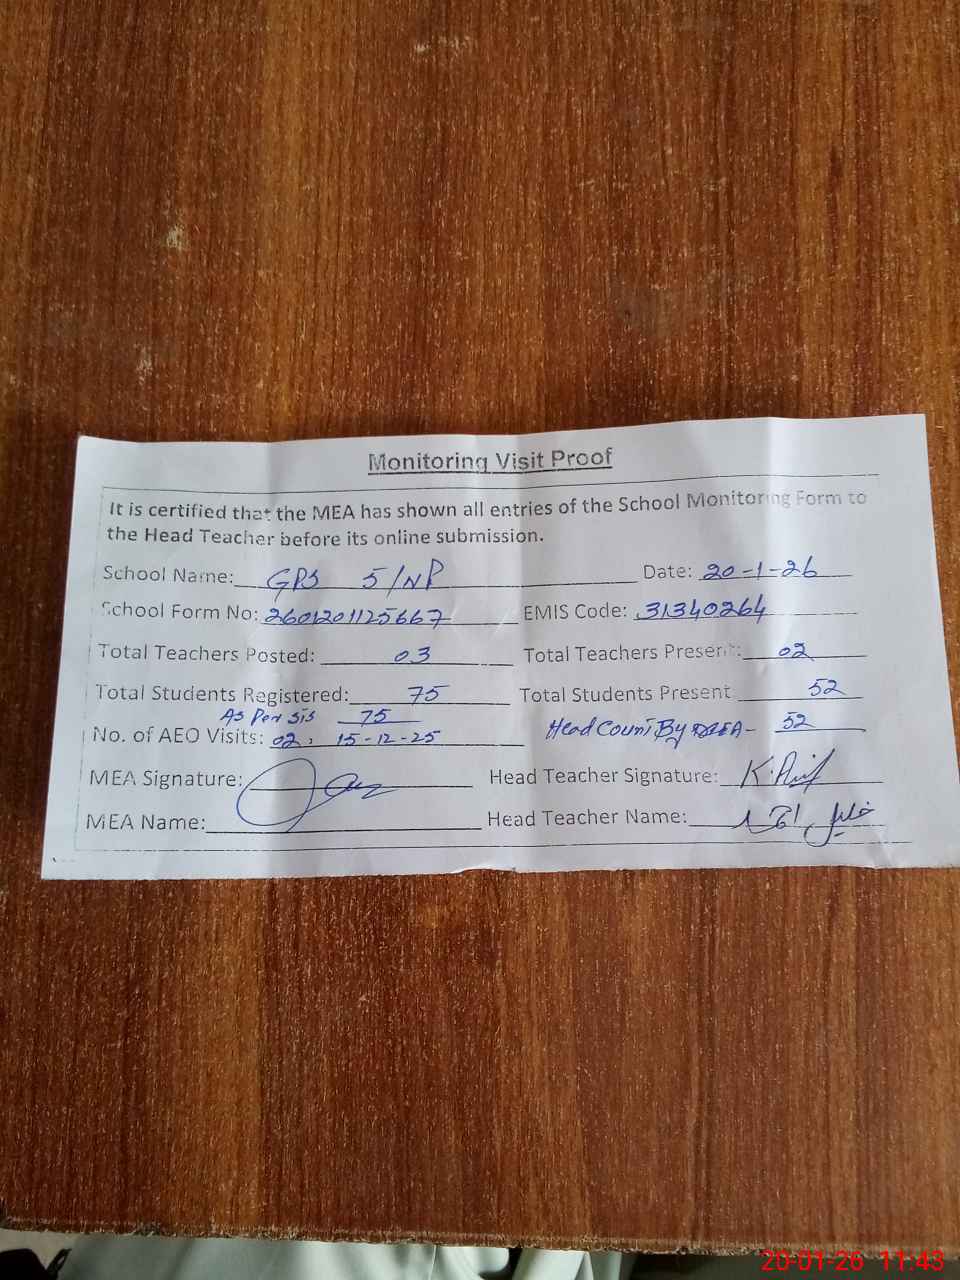 Monitoring Visit Proof
It is certified that the MEA has shown all entries of the School Monitoring Form to
the Head Teacher before its online submission.
School Name: GPS 5/NP Date: 20-1-26
School Form No: 2601201125667 EMIS Code: 31340264
Total Teachers Posted: 03 Total Teachers Present: 02
Total Students Registered: 75 Total Students Present 52
As Per SIS 75
No. of AEO Visits: 02, 15-12-25 Head Count By MEA- 52
MEA Signature: Head Teacher Signature:
MEA Name: Head Teacher Name: خلیل احمد
20-01-26 11:43